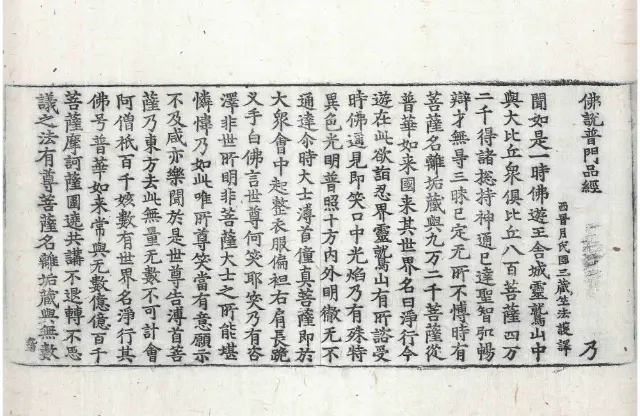 佛說普門品經
西晉月氏國三藏竺法護譯 乃
聞如是一時佛遊王舍城靈鷲山中
與大比丘衆俱比丘八百菩薩四万
二千得諸揔持神通已達聖智弘暢
辯才無㝵三昧已定无所不博時有
菩薩名離垢藏與九万二千菩薩從
普華如来國来其世界名曰淨行今
遊在此欲詣忍界靈鷲山有所諮受
時佛遥見即笑口中光焰乃有殊特
異色光明普照十方內外明徹无不
通達尒時大士溥首僮真菩薩即於
大衆會中起整衣服偏袒右肩長跪
叉手白佛言世尊何笑耶笑乃有咨
澤非世所明非菩薩大士之所能堪
憐慱乃如此唯所尊笑當有意願示
不及咸亦樂聞於是世尊告溥首菩
薩乃東方去此無量无數不可計會
阿僧祇百千姟數有世界名淨行其
佛号普華如来常與无數億億百千
菩薩摩訶薩圍遶共講不退轉不思
議之法有尊菩薩名離垢藏與無數